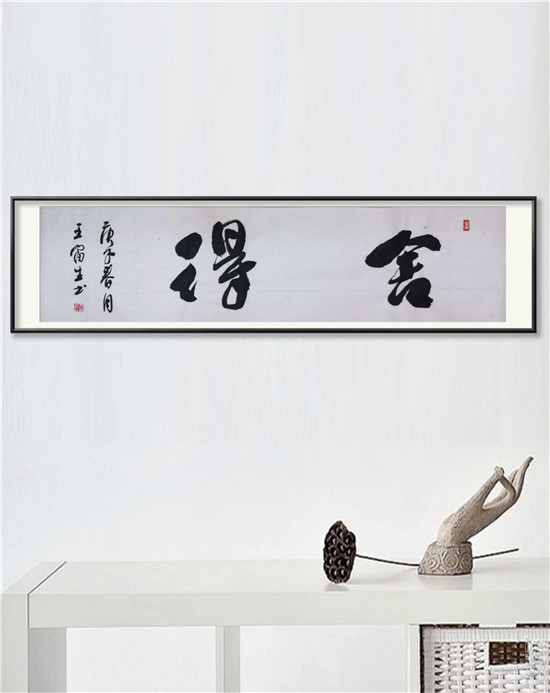 舍得
庚子春月
王富生书